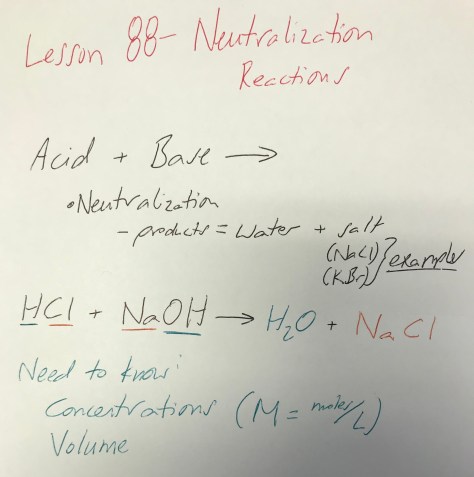 Lesson 88- Neutralization
Reactions
Acid + Base →
• Neutralization
- products = water + salt
(NaCl)
(KBr) } example
HCl + NaOH → H₂O + NaCl
Need to know:
Concentrations (M = moles/L)
Volume